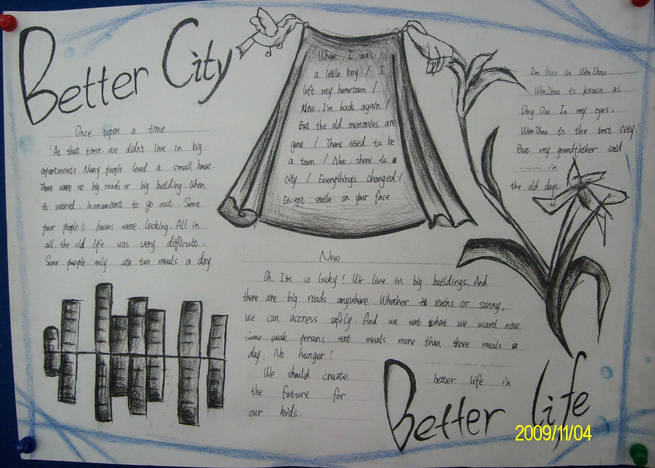 Better City
Once upon a time
As that time, we didn't love in big
apartments. Many people loved a small house.
There were no big roads or big building. When
it rained, inconvenient to go out. Some
poor people's houses were leaking. All in
all, the old life was very difficult.
Some people only ate two meals a day.
When I was
a little boy / I
left my hometown /
Now, I'm back again /
But the old memories are
gone / There used to be
a town / Now, there is a
city / Everything's changed /
Except smile on your face
I'm born in WenZhou
WenZhou is known as
Dong Ou. In my eyes,
WenZhou is the best city.
But my grandfather said
in
the old days
Now
Oh, I'm so lucky! We live in big buildings. And
there are big roads anywhere. Whether to rains or sunny,
we can accress safely. And we eat what we want now.
Some weak persons eat meals more than three meals a
day. No hunger!
We should create better life in
the future for
our kids.
Better life
2009/11/04